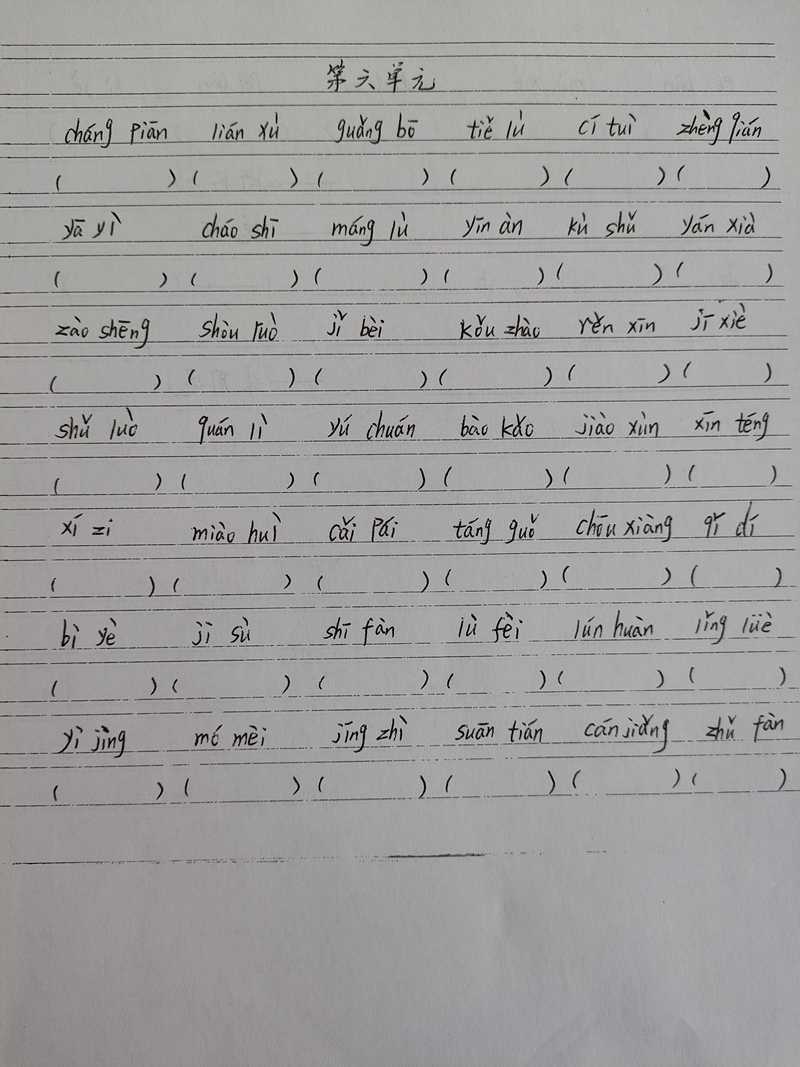 第六单元
cháng piān lián xù guǎng bō tiě lù cí tuì zhèng qián
( ) ( ) ( ) ( ) ( ) ( )
yā yì cháo shī máng lù yīn àn kù shǔ yán xià
( ) ( ) ( ) ( ) ( ) ( )
zào shēng shòu ruò jǐ bèi kǒu zhào rěn xīn jī xiè
( ) ( ) ( ) ( ) ( ) ( )
shǔ luò quán lì yú chuán bào kǎo jiào xùn xīn téng
( ) ( ) ( ) ( ) ( ) ( )
xí zi miào huì cǎi pái táng guǒ chōu xiàng qǐ dí
( ) ( ) ( ) ( ) ( ) ( )
bì yè jì sù shī fàn lù fèi lún huàn lǐng lüè
( ) ( ) ( ) ( ) ( ) ( )
yì jìng mó mèi jīng zhì suān tián cán jiǎng zhǔ fàn
( ) ( ) ( ) ( ) ( ) ( )